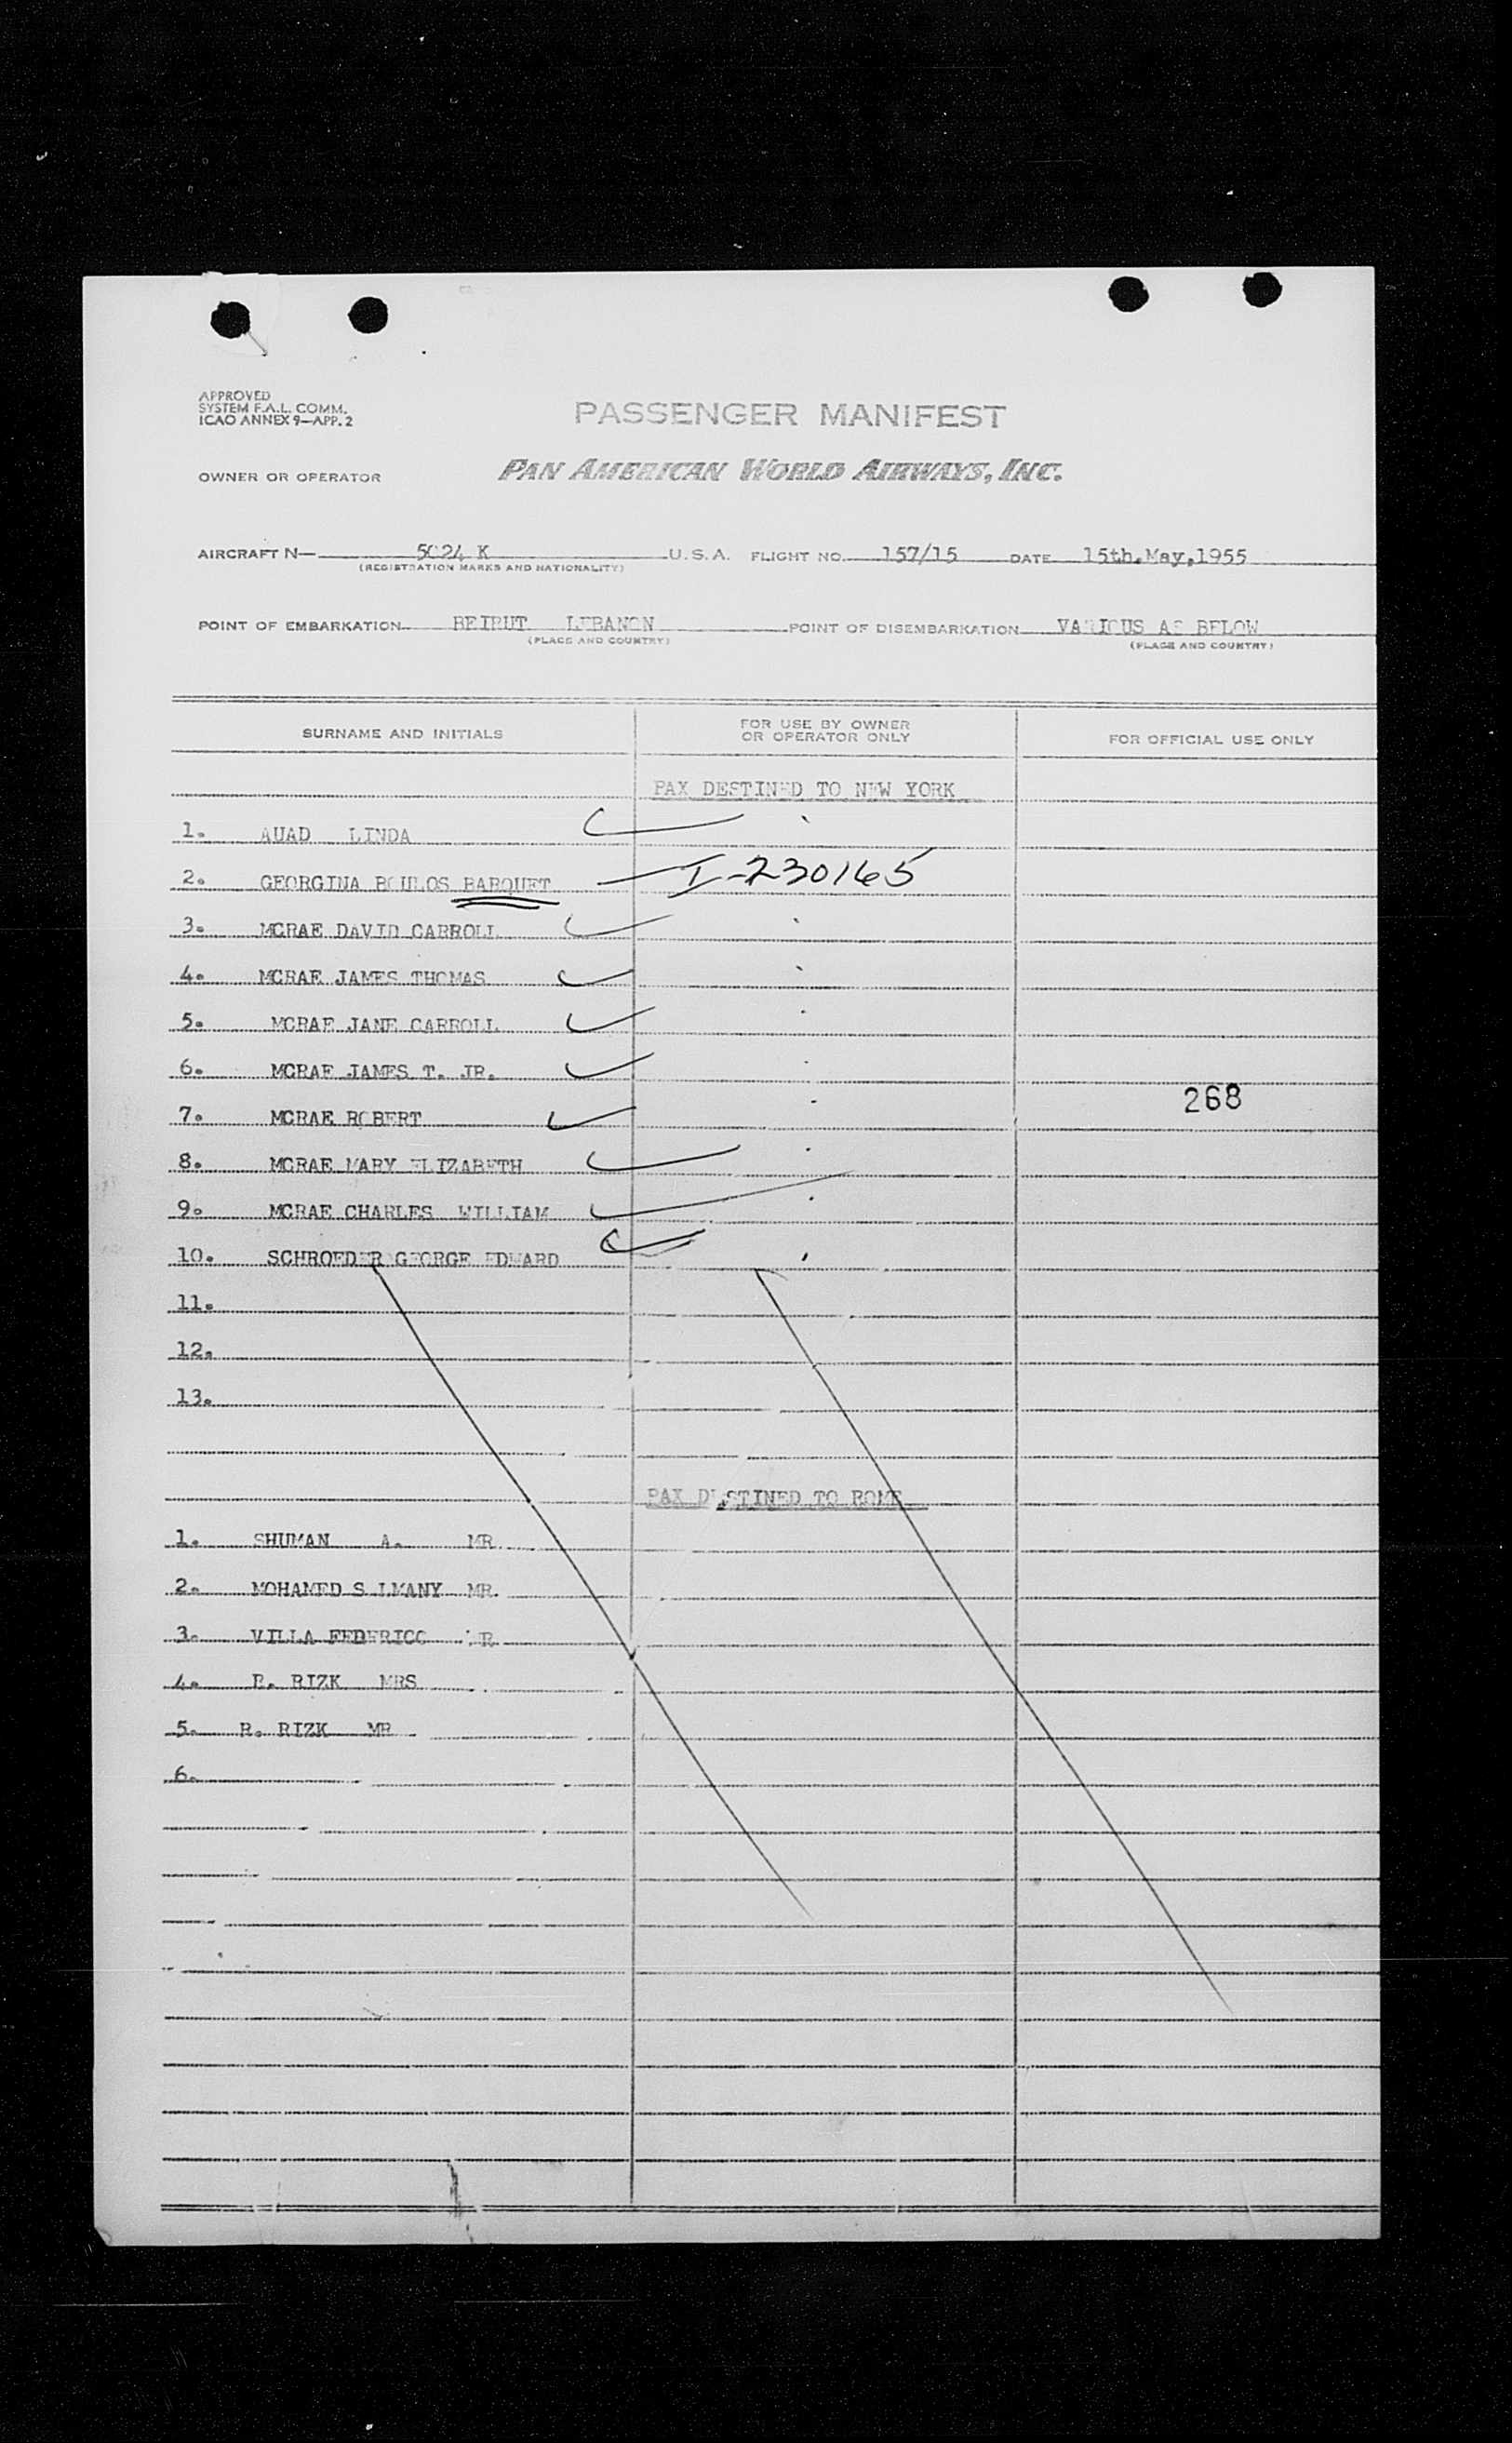 APPROVED
SYSTEM F.A.L. COMM.
ICAO ANNEX 9—APP. 2
PASSENGER MANIFEST
OWNER OR OPERATOR PAN AMERICAN WORLD AIRWAYS, INC.
AIRCRAFT N— 5024 K U.S.A. FLIGHT NO. 157/15 DATE 15th.May,1955
(REGISTRATION MARKS AND NATIONALITY)
POINT OF EMBARKATION BEIRUT LEBANON POINT OF DISEMBARKATION VARIOUS AS BELOW
(PLACE AND COUNTRY) (PLACE AND COUNTRY)
SURNAME AND INITIALS FOR USE BY OWNER OR OPERATOR ONLY FOR OFFICIAL USE ONLY
PAX DESTINED TO NEW YORK
1. AUAD LINDA
2. GEORGINA BOULOS BARQUET I-230165
3. MCRAE DAVID CARROLL
4. MCRAE JAMES THOMAS
5. MCRAE JANE CARROLL
6. MCRAE JAMES T. JR.
268
7. MCRAE ROBERT
8. MCRAE MARY ELIZABETH
9. MCRAE CHARLES WILLIAM
10. SCHROEDER GEORGE EDWARD
11.
12.
13.
PAX DESTINED TO ROME
1. SHUMAN A. MR
2. MOHAMED MR.
3. VILLA FEDERICO MR
4. R. RIZK MRS
5. R. RIZK MR
6.